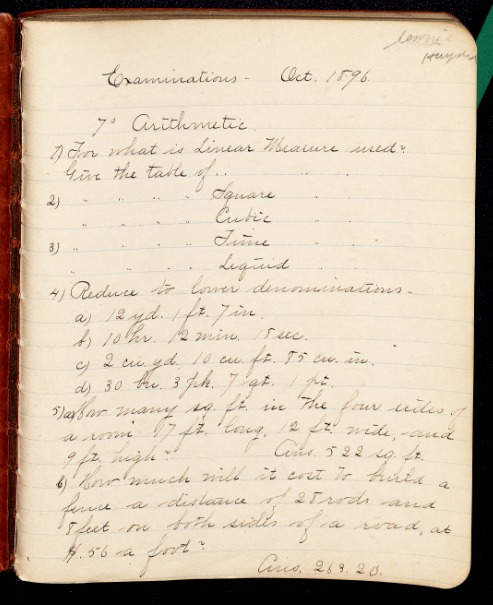 Examinations - Oct. 1896
7° Arithmetic.
1) For what is Linear Measure used?
Give the table of . .
2) " " " " Square " "
" " " " Cubic " "
3) " " " " Time " "
" " " " Liquid " "
4) Reduce to lower denominations -
a) 12 yd. 1 ft. 7 in.
b) 10 hr. 12 min. 18 sec.
c) 2 cu yd. 10 cu ft. 85 cu. in.
d) 30 bu. 3 pk. 7 qt. 1 pt.
5) a) How many sq. ft. in the four sides of
a room 17 ft. long, 12 ft. wide, and
9 ft. high? Ans. 522 sq. ft.
b) How much will it cost to build a
fence a distance of 28 rods and
8 feet on both sides of a road, at
$.56 a foot?
Ans. 263.20.